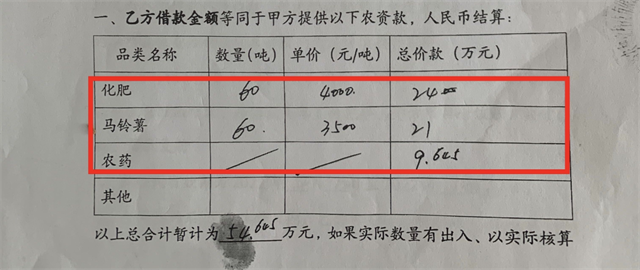 一、乙方借款金额等同于甲方提供以下农资款，人民币结算：
品类名称 数量（吨） 单价（元/吨） 总价款（万元）
化肥 60 4000. 24
马铃薯 60. 3500 21
农药 / / 9.645
其他
以上总合计暂计为 54.645 万元，如果实际数量有出入、以实际核算